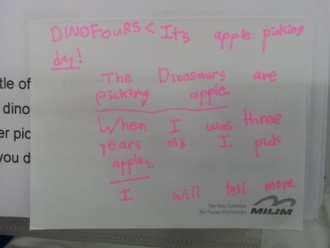 DINOFOURS < Its apple picking
day!
The Dinosaurs are
picking apple.
When I was three
years old I pick
apples.
I will tell mom.
The Best Solution
for Power Electronics
MILIM
tle of
dino
er pic
you d